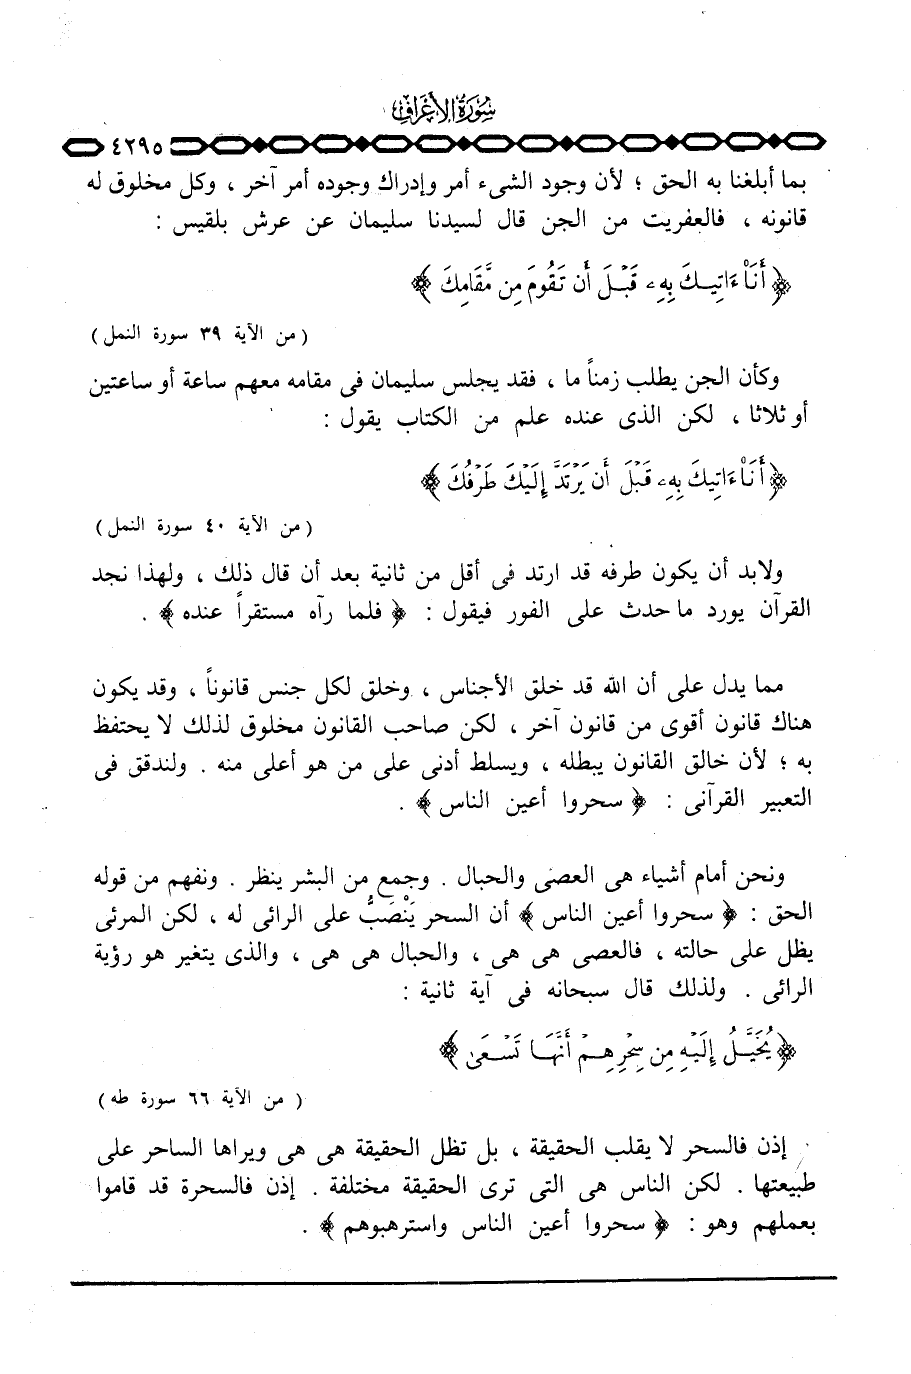 سُورَةُ الأَعْرَافِ
٤٢٩٥
بما أبلغنا به الحق ؛ لأن وجود الشىء أمر وإدراك وجوده أمر آخر ، وكل مخلوق له
قانونه ، فالعفريت من الجن قال لسيدنا سليمان عن عرش بلقيس :
﴿ أَنَا۠ ءَاتِيكَ بِهِۦ قَبْلَ أَن تَقُومَ مِن مَّقَامِكَ ﴾
( من الآية ٣٩ سورة النمل )
وكأن الجن يطلب زمناً ما ، فقد يجلس سليمان فى مقامه معهم ساعة أو ساعتين
أو ثلاثا ، لكن الذى عنده علم من الكتاب يقول :
﴿ أَنَا۠ ءَاتِيكَ بِهِۦ قَبْلَ أَن يَرْتَدَّ إِلَيْكَ طَرْفُكَ ﴾
( من الآية ٤٠ سورة النمل )
ولابد أن يكون طرفه قد ارتد فى أقل من ثانية بعد أن قال ذلك ، ولهذا نجد
القرآن يورد ما حدث على الفور فيقول : ﴿ فلما رآه مستقراً عنده ﴾ .
مما يدل على أن الله قد خلق الأجناس ، وخلق لكل جنس قانوناً ، وقد يكون
هناك قانون أقوى من قانون آخر ، لكن صاحب القانون مخلوق لذلك لا يحتفظ
به ؛ لأن خالق القانون يبطله ، ويسلط أدنى على من هو أعلى منه . ولندقق فى
التعبير القرآنى : ﴿ سحروا أعين الناس ﴾ .
ونحن أمام أشياء هى العصى والحبال . وجمع من البشر ينظر . ونفهم من قوله
الحق : ﴿ سحروا أعين الناس ﴾ أن السحر يَنْصَبُّ على الرائى له ، لكن المرئى
يظل على حالته ، فالعصى هى هى ، والحبال هى هى ، والذى يتغير هو رؤية
الرائى . ولذلك قال سبحانه فى آية ثانية :
﴿ يُخَيَّلُ إِلَيْهِ مِن سِحْرِهِمْ أَنَّهَا تَسْعَىٰ ﴾
( من الآية ٦٦ سورة طه )
إذن فالسحر لا يقلب الحقيقة ، بل تظل الحقيقة هى هى ويراها الساحر على
طبيعتها . لكن الناس هى التى ترى الحقيقة مختلفة . إذن فالسحرة قد قاموا
بعملهم وهو : ﴿ سحروا أعين الناس واسترهبوهم ﴾ .